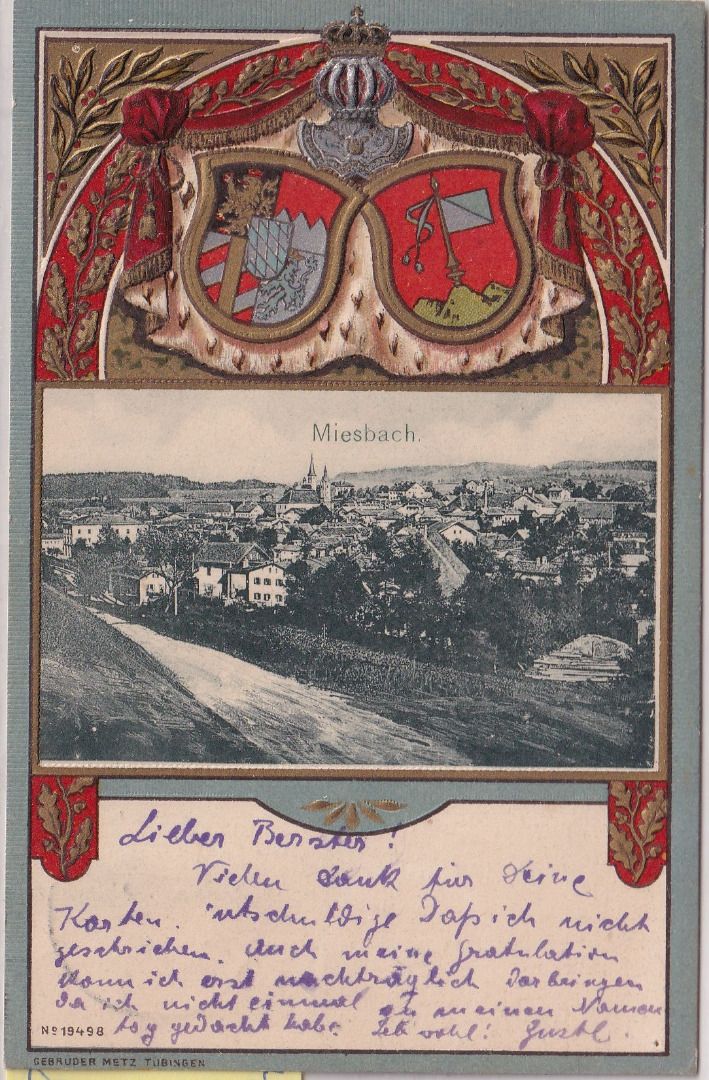 Miesbach.
Lieber Berzter!
Vielen Dank für Deine
Karten. Entschuldige Daß ich nicht
geschrieben. Auch meine Gratulation
kann ich erst nachträglich darbringen
da ich nicht einmal an meinen Namen
tag gedacht habe. Leb wohl! Gustl.
No 19498
GEBRÜDER METZ TÜBINGEN